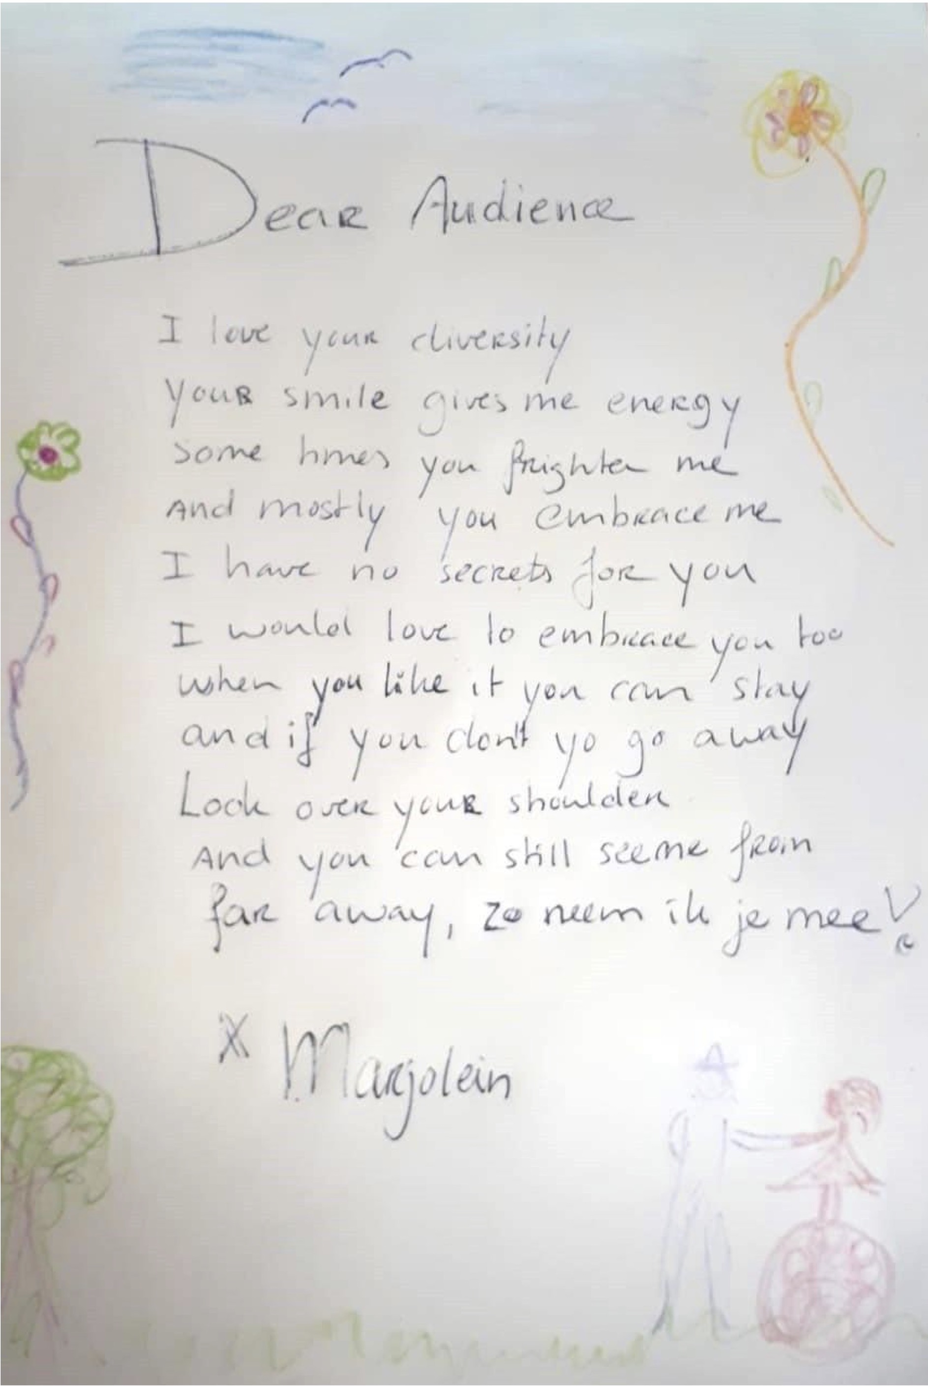 Dear Audience
I love your diversity
Your smile gives me energy
Some times you frighten me
And mostly you embrace me
I have no secrets for you
I would love to embrace you too
when you like it you can stay
and if you don't yo go away
Look over your shoulder
And you can still see me from
far away, zo neem ik je mee!
X Marjolein